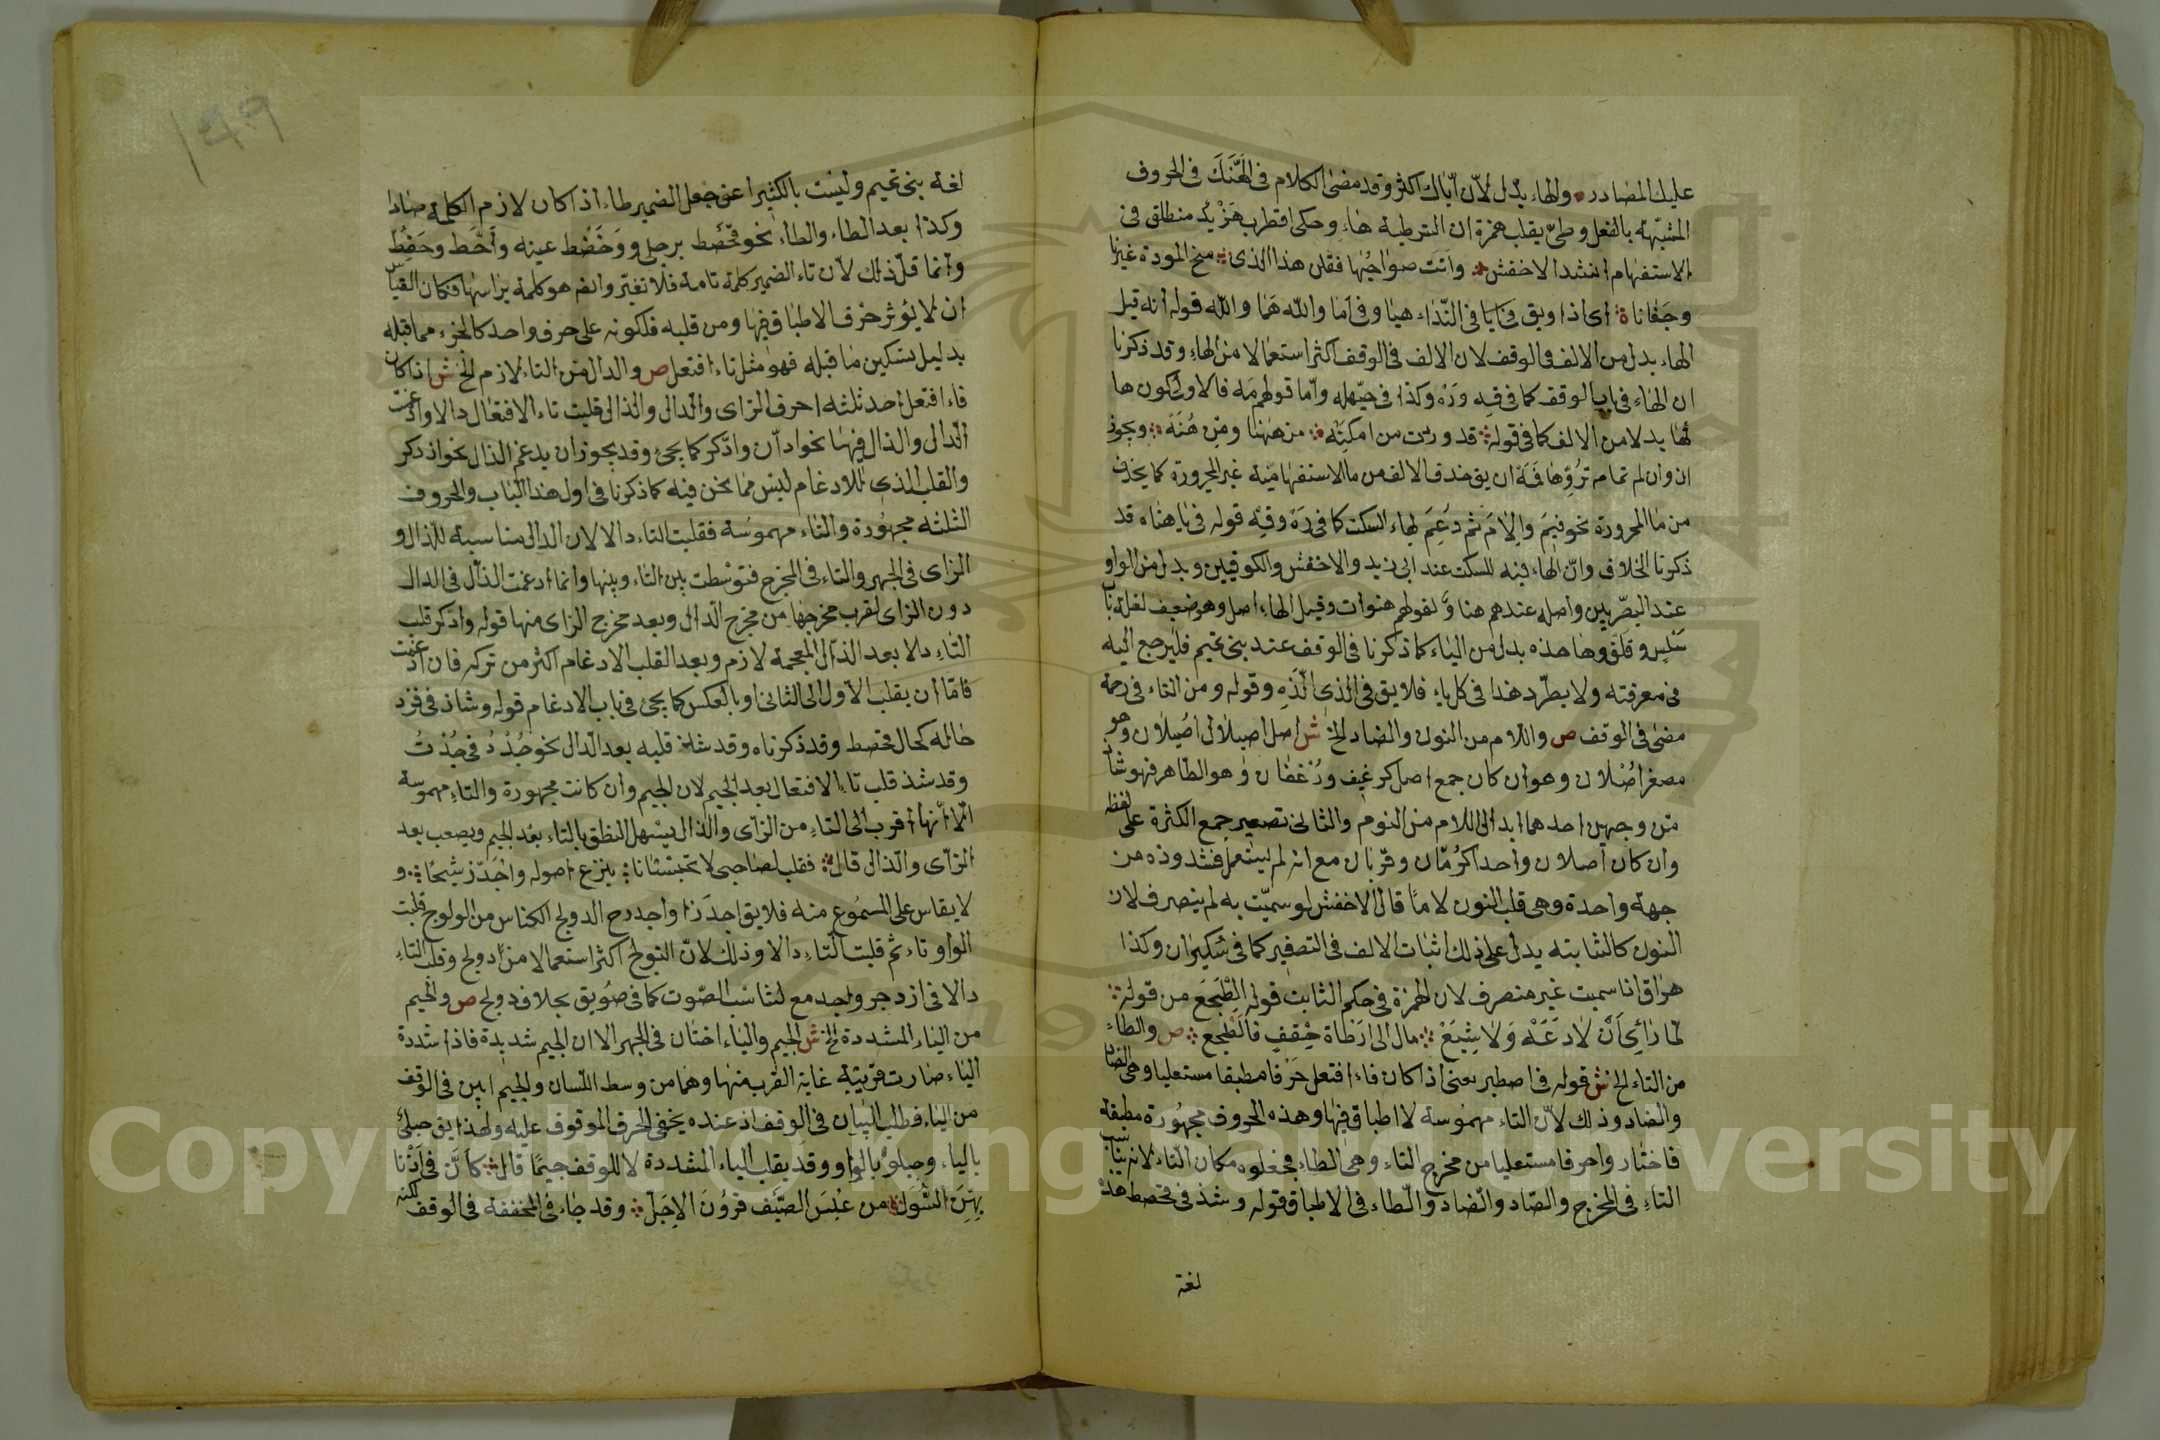 عليك المصادر والهاء بدل لان اياك اكثر وقد مضى الكلام فى لهنك فى الحروف
المشبهة بالفعل وطئ يقلب همزة ان الشرطية هاء وحكى قطرب هزيد منطلق فى
الاستفهام انشد الاخفش واتت صواحبها فقلن هذا الذى منح المودة غيرنا
وجفانا اى اذا ويق فى ايا فى النداء هيا وفى اما والله هما والله قوله انه قيل
الهاء بدل من الالف فى الوقف لان الالف فى الوقف اكثر استعمالا من الهاء وقد ذكرنا
ان الهاء فى باب الوقف كما فى قه وره وكذا فى حيهله واما قولهم مه فالاولى كون ها
ئها بدلا من الالف كما فى قوله قد وردت من امكنه من ههنا ومن هنه ويجوز
ان وان لم تمامه ترؤها فمه ان يق حذف الالف من ما الاستفهامية غير المجرورة كما يحذف
من ما المجرورة نحو فيم والام ثم دعم لهاء السكت كما فى ره وقه قوله فى يا هناه قد
ذكرنا الخلاف وان الهاء فيه للسكت عند ابى زيد والاخفش والكوفيين وبدل من الواو
عند البصريين واصله عندهم هناو لقولهم هنوات وقيل الهاء اصل وهو ضعيف لقلة باب
سلس وقلق وها هذه بدل من الياء كما ذكرنا فى الوقف عند بنى تميم فليرجع اليه
فى معرفته ولا يطرد هذا فى كل ياء فلا يق فى الذى الذه وقوله ومن التاء فى رحمة
مضى فى الوقف ص واللام من النون والضاد الخ ش اصل اصيلال اصيلان وهو
مصغر اصلان وهو ان كان جمع اصيل كرغيف ورغفان وهو الظاهر فهو شاذ
من وجهين احدهما ابدال اللام من النون والثانى تصغير جمع الكثرة على لفظه
وان كان اصلان واحدا كرمان وقربان مع انه لم يستعمل فشذوذه من
جهة واحدة وهى قلب النون لاما قال الاخفش لو سميت به لم ينصرف لان
النون كالثابتة يدل على ذلك اثبات الالف فى التصغير كما فى سكيران وكذا
هراق اذا سميت غير منصرف لان الهمزة فى حكم الثابت قوله الطجع من قوله
لما راى ان لا دعه ولا شبع مال الى ارطاة حقف فالطجع ص والطاء
من التاء الخ ش قوله فى اصطبر يعنى اذا كان فاء افتعل حرفا مطبقا مستعليا وهى الصاد
والضاد وذلك لان التاء مهموسة لا اطباق فيها وهذه الحروف مجهورة مطبقة
فاختاروا حرفا مستعليا من مخرج التاء وهى الطاء فجعلوه مكان التاء لانه يناسب
التاء فى المخرج والصاد والضاد والطاء فى الاطباق قوله وشذ فى فحصط هذه
لغة
١٩٩
لغة بنى تميم وليست بالكثير اعنى جعل الضمير طاء اذا كان لازم الكلمة صادا
وكذا بعد الطاء والظاء نحو فحصط برجلى وخضط عينه واحط وحفظ
وانما قل ذلك لان تاء الضمير كلمة تامة فلا تغير وايضا هو كلمة براسها فكان القياس
ان لا يؤثر حرف الاطباق فيها ومن قلبه فلكونه على حرف واحد كالجزء مما قبله
بدليل تسكين ما قبله فهو مثل تاء افتعل ص والدال من التاء لازم الخ ش اذا كان
فاء افتعل احد ثلثة احرف الزاى والدال والذال قلبت تاء الافتعال دالا وادغمت
الدال والذال فيها نحو ادان وادكر كما يجئ وقد يجوز ان يدغم الذال نحو اذ ذكر
والقلب الذى للادغام ليس مما نحن فيه كما ذكرنا فى اول هذا الباب والحروف
الثلثة مجهورة والتاء مهموسة فقلبت التاء دالا لان الدال مناسبة للذال و
الزاى فى الجهر والتاء فى المخرج فتوسطت بين التاء وبينها وانما ادغمت الذال فى الدال
دون الزاى لقرب مخرجها من مخرج الدال وبعد مخرج الزاى منها قوله وادكر قلب
التاء دالا بعد الذال المعجمة لازم وبعد القلب الادغام اكثر من تركه فان ادغمت
فاما ان يقلب الاول الى الثانى او بالعكس كما يجئ فى باب الادغام قوله وشاذ فى فزد
حاله كحال فحصط وقد ذكرناه وقد شذ قلبه بعد الدال نحو جدد فى جدت
وقد شذ قلب تاء الافتعال بعد الجيم لان الجيم وان كانت مجهورة والتاء مهموسة
الا انها اقرب الى التاء من الزاى والذال يسهل النطق بالتاء بعد الجيم ويصعب بعد
الزاى والذال قال فقلت لصاحبى لا تحبسانا بنزع اصوله واجدز شيحا و
لا يقاس على المسموع منه فلا يق اجدرا واجدرح الدولج الكناس من الولوج قلبت
الواو تاء ثم قلبت التاء دالا وذلك لان التولج اكثر استعمالا من دولج وقلب التاء
دالا فى ازدجر واجدمع لتناسب الصوت كما فى صويق بخلاف دولج ص والجيم
من الياء المشددة الخ ش الجيم والياء اختان فى الجهر الا ان الجيم شديدة فاذا شددت
الياء صارت قريبة غاية القرب منها وهما من وسط اللسان والجيم ابين فى الوقف
من الياء فطلب البيان فى الوقف اذ عنده يخفى الحرف الموقوف عليه ولهذا يق حبلى
بالياء وحبلو بالواو وقد يقلب الياء المشددة لا للوقف جيما قال كان فى اذنا
بهن الشول من عبس الصيف قرون الاجل وقد جاء فى المخففة فى الوقف لكنه
Copyright © King Saud University